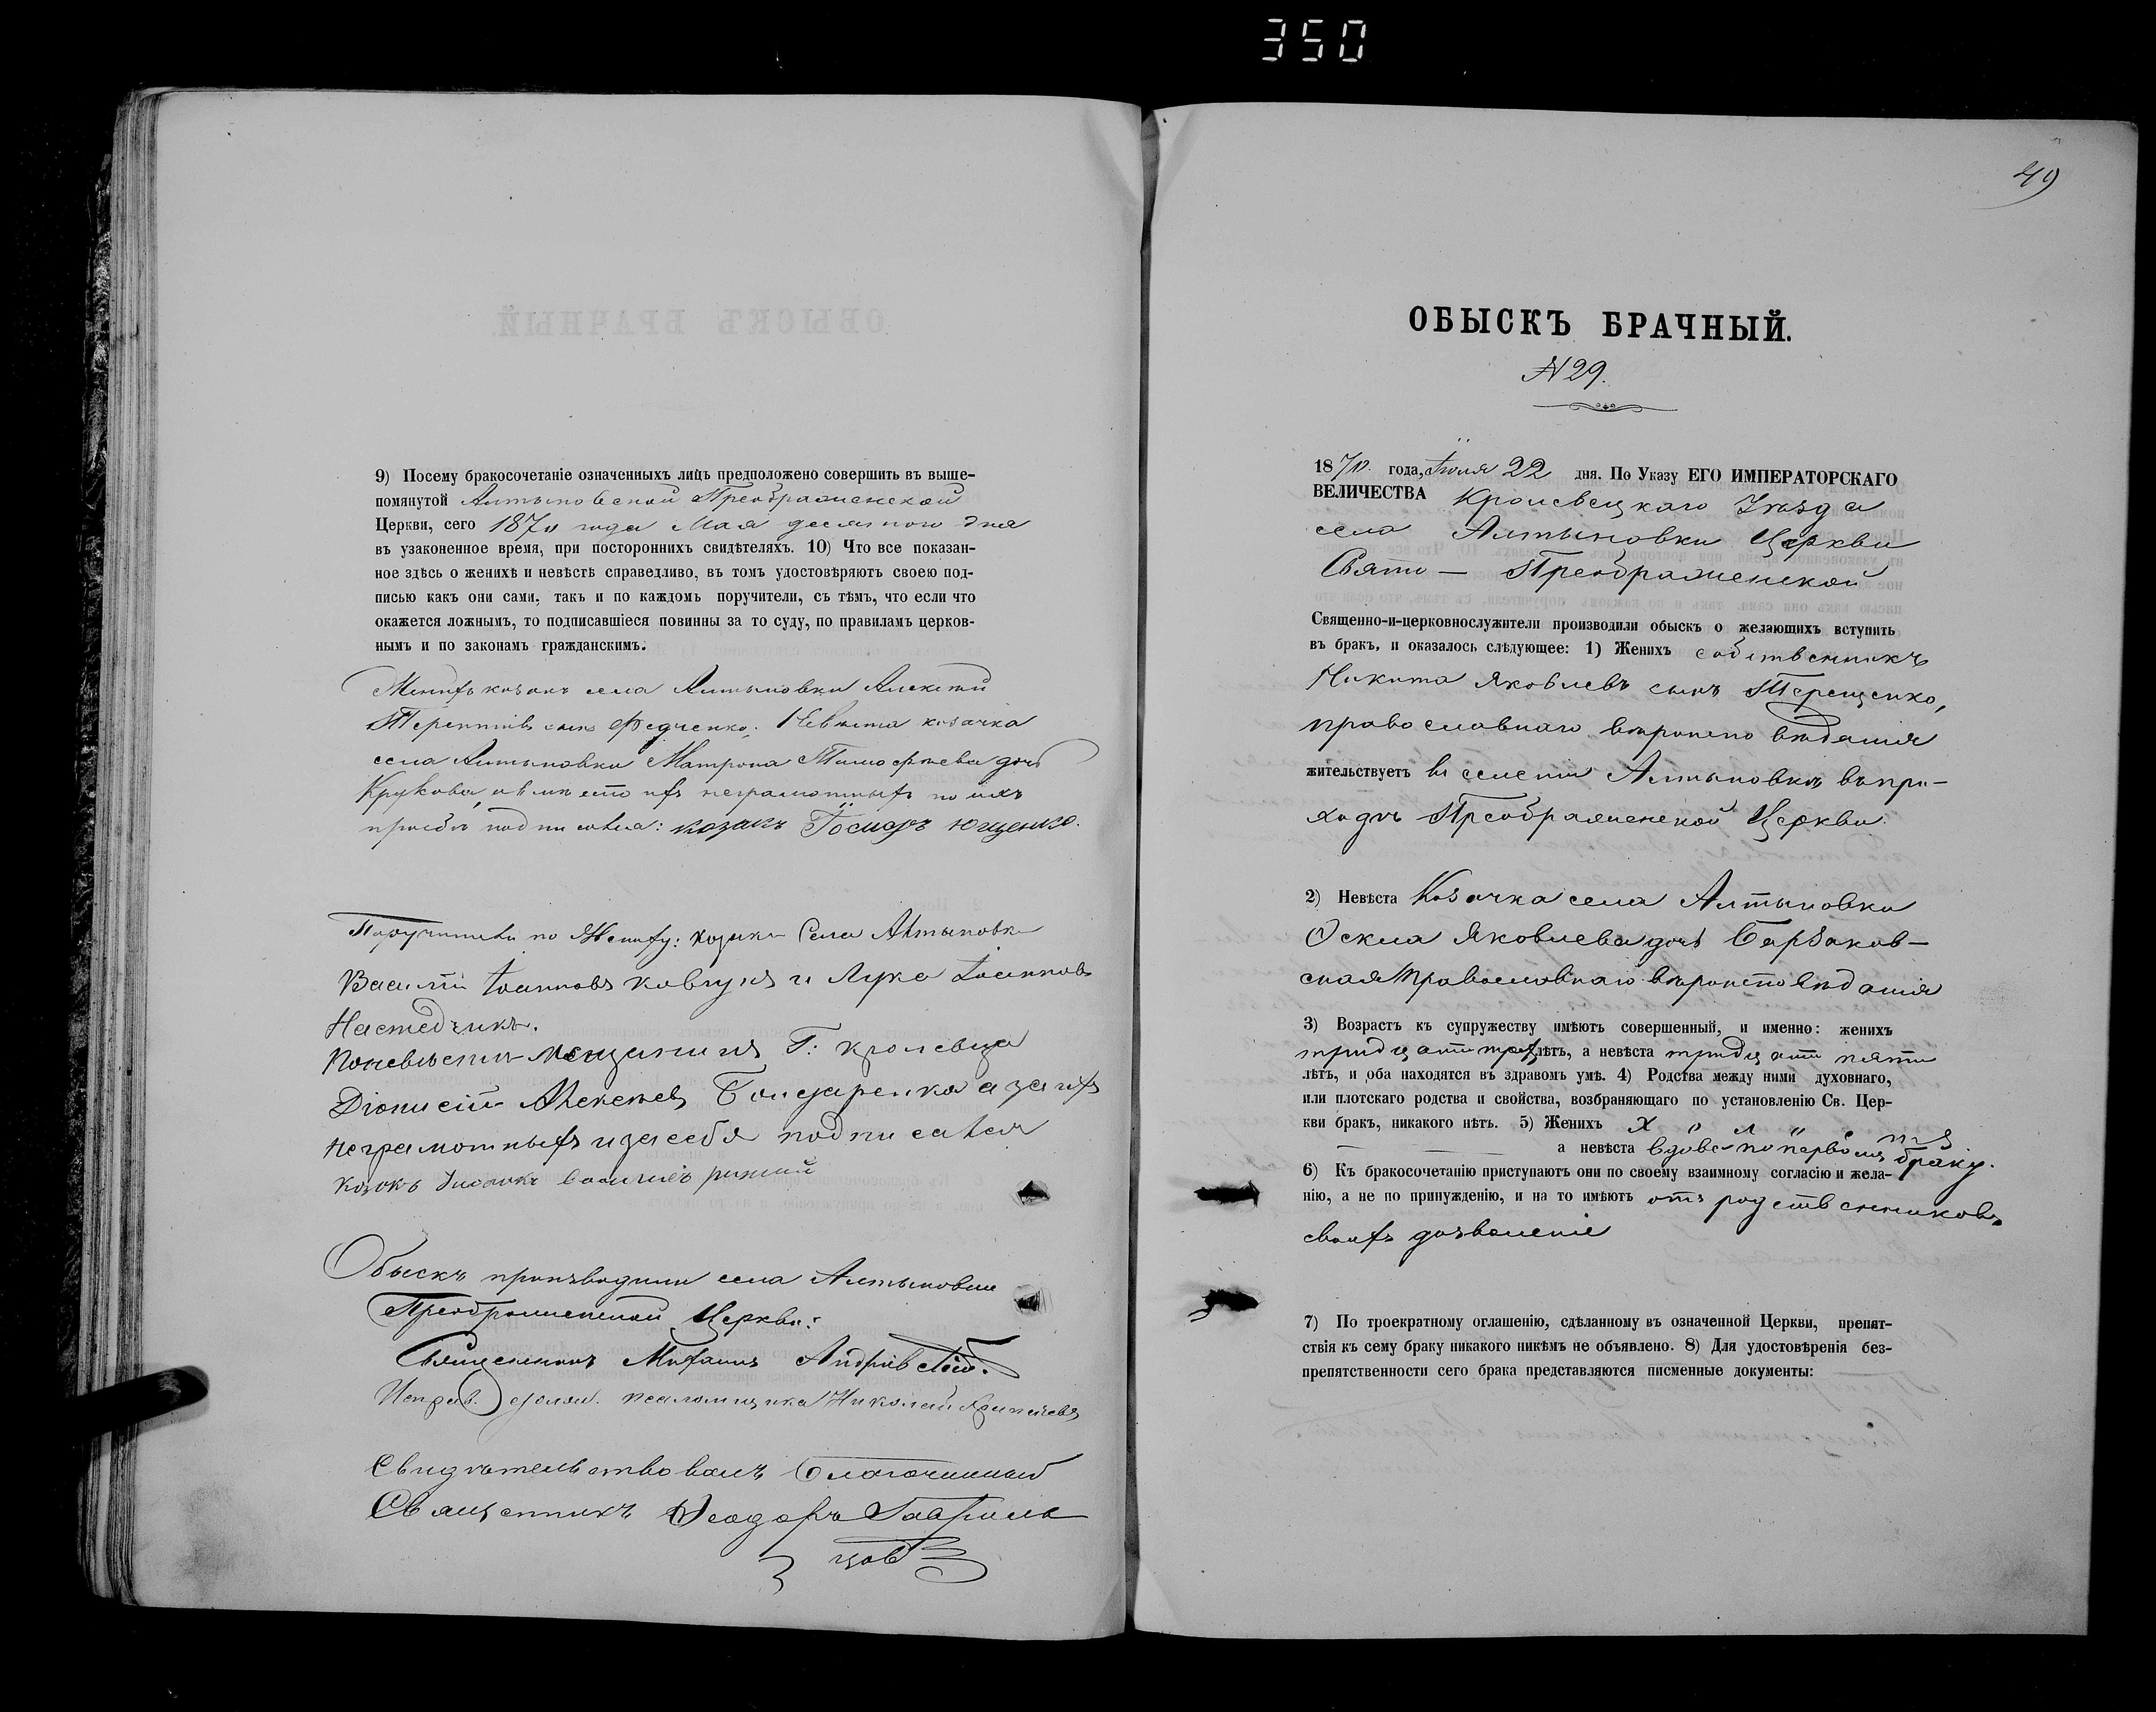 350
9) Посему бракосочетаніе означенныхъ лицъ предположено совершить въ выше-
помянутой Алтыновской Преображенской
Церкви, сего 1870 года Мая десятого дня
въ узаконенное время, при постороннихъ свидѣтеляхъ. 10) Что все показан-
ное здѣсь о женихѣ и невѣстѣ справедливо, въ томъ удостовѣряютъ своею под-
писью какъ они сами, такъ и по каждомъ поручители, съ тѣмъ, что если что
окажется ложнымъ, то подписавшіеся повинны за то суду, по правиламъ церков-
нымъ и по законамъ гражданскимъ.
Женихъ козакъ села Алтыновки Алексѣй
Терентіевъ сынъ Федченко; Невѣста козачка
села Алтыновки Матрона Тимофѣева дочь
Крукова, а вмѣсто ихъ неграмотныхъ по ихъ
прозбѣ подписался: козакъ Іосифъ Ющенко.
Поручители по Жениху: козаки Села Алтыновки
Василій Іоанновъ Ковтунъ и Лука Іоанновъ
По невѣсти мещанинъ Г: Кролевца
Діонисій Алексѣевъ Бондаренко а за ихъ
неграмотныхъ и за себя подписался
козакъ
Обыскъ производили села Алтыновки
Преображенской Церкви:
Священникъ Михаилъ Андріевскій.
Исправ. должн. псаломщика Николай
Свидѣтельствовалъ Благочинный
Священникъ Ѳеодоръ Гаврилов
цовъ
49
ОБЫСКЪ БРАЧНЫЙ.
N 29.
1870. года, Іюля 22 дня. По Указу ЕГО ИМПЕРАТОРСКАГО
ВЕЛИЧЕСТВА Кролевецкаго Уѣзда
села Алтыновки Церкви
Свято — Преображенской
Священно-и-церковнослужители производили обыскъ о желающихъ вступить
въ бракъ, и оказалось слѣдующее: 1) Женихъ собственникъ
Никита Яковлевъ сынъ Терещенко,
православнаго вѣроисповѣданія
жительствуетъ въ селеніи Алтыновкѣ въ при-
ходѣ Преображенской Церкви.
2) Невѣста Козачка села Алтыновки
Яковлева дочь Барбаков-
ская Православнаго вѣроисповѣданія
3) Возрастъ къ супружеству имѣютъ совершенный, и именно: женихъ
тридцати трехъ лѣтъ, а невѣста тридцати пяти
лѣтъ, и оба находятся въ здравомъ умѣ. 4) Родства между ними духовнаго,
или плотскаго родства и свойства, возбраняющаго по установленію Св. Цер-
кви бракъ, никакого нѣтъ. 5) Женихъ
а невѣста вдова по первомъ бракѣ.
6) Къ бракосочетанію приступаютъ они по своему взаимному согласію и жела-
нію, а не по принужденію, и на то имѣютъ отъ родственниковъ
своихъ дозволеніе
7) По троекратному оглашенію, сдѣланному въ означенной Церкви, препят-
ствія къ сему браку никакого никѣмъ не объявлено. 8) Для удостовѣренія без-
препятственности сего брака представляются писменные документы: